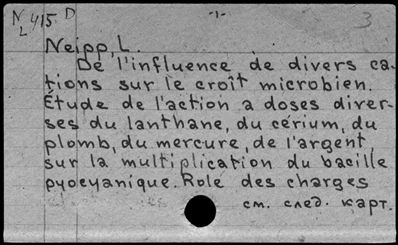 N 415 D
L
-1-
3
Neipp, L.
De l'influence de divers ca-
tions sur le croît microbien.
Étude de l'action a doses diver-
ses du lanthane, du cérium, du
plomb, du mercure, de l'argent,
sur la multiplication du bacille
pyocyanique. Role des charges
см. след. карт.